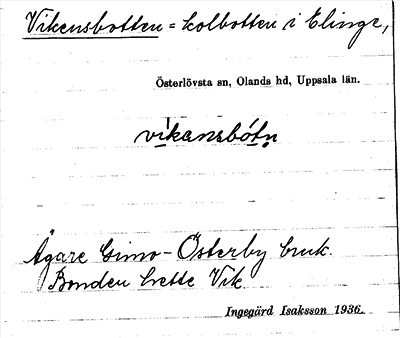 Vikensbotten = kolbotten i Elinge,
Österlövsta sn, Olands hd, Uppsala län.
vikansbótn̥
Ägare Gimo-Österby bruk.
Bonden hette Vik.
Ingegärd Isaksson 1936.